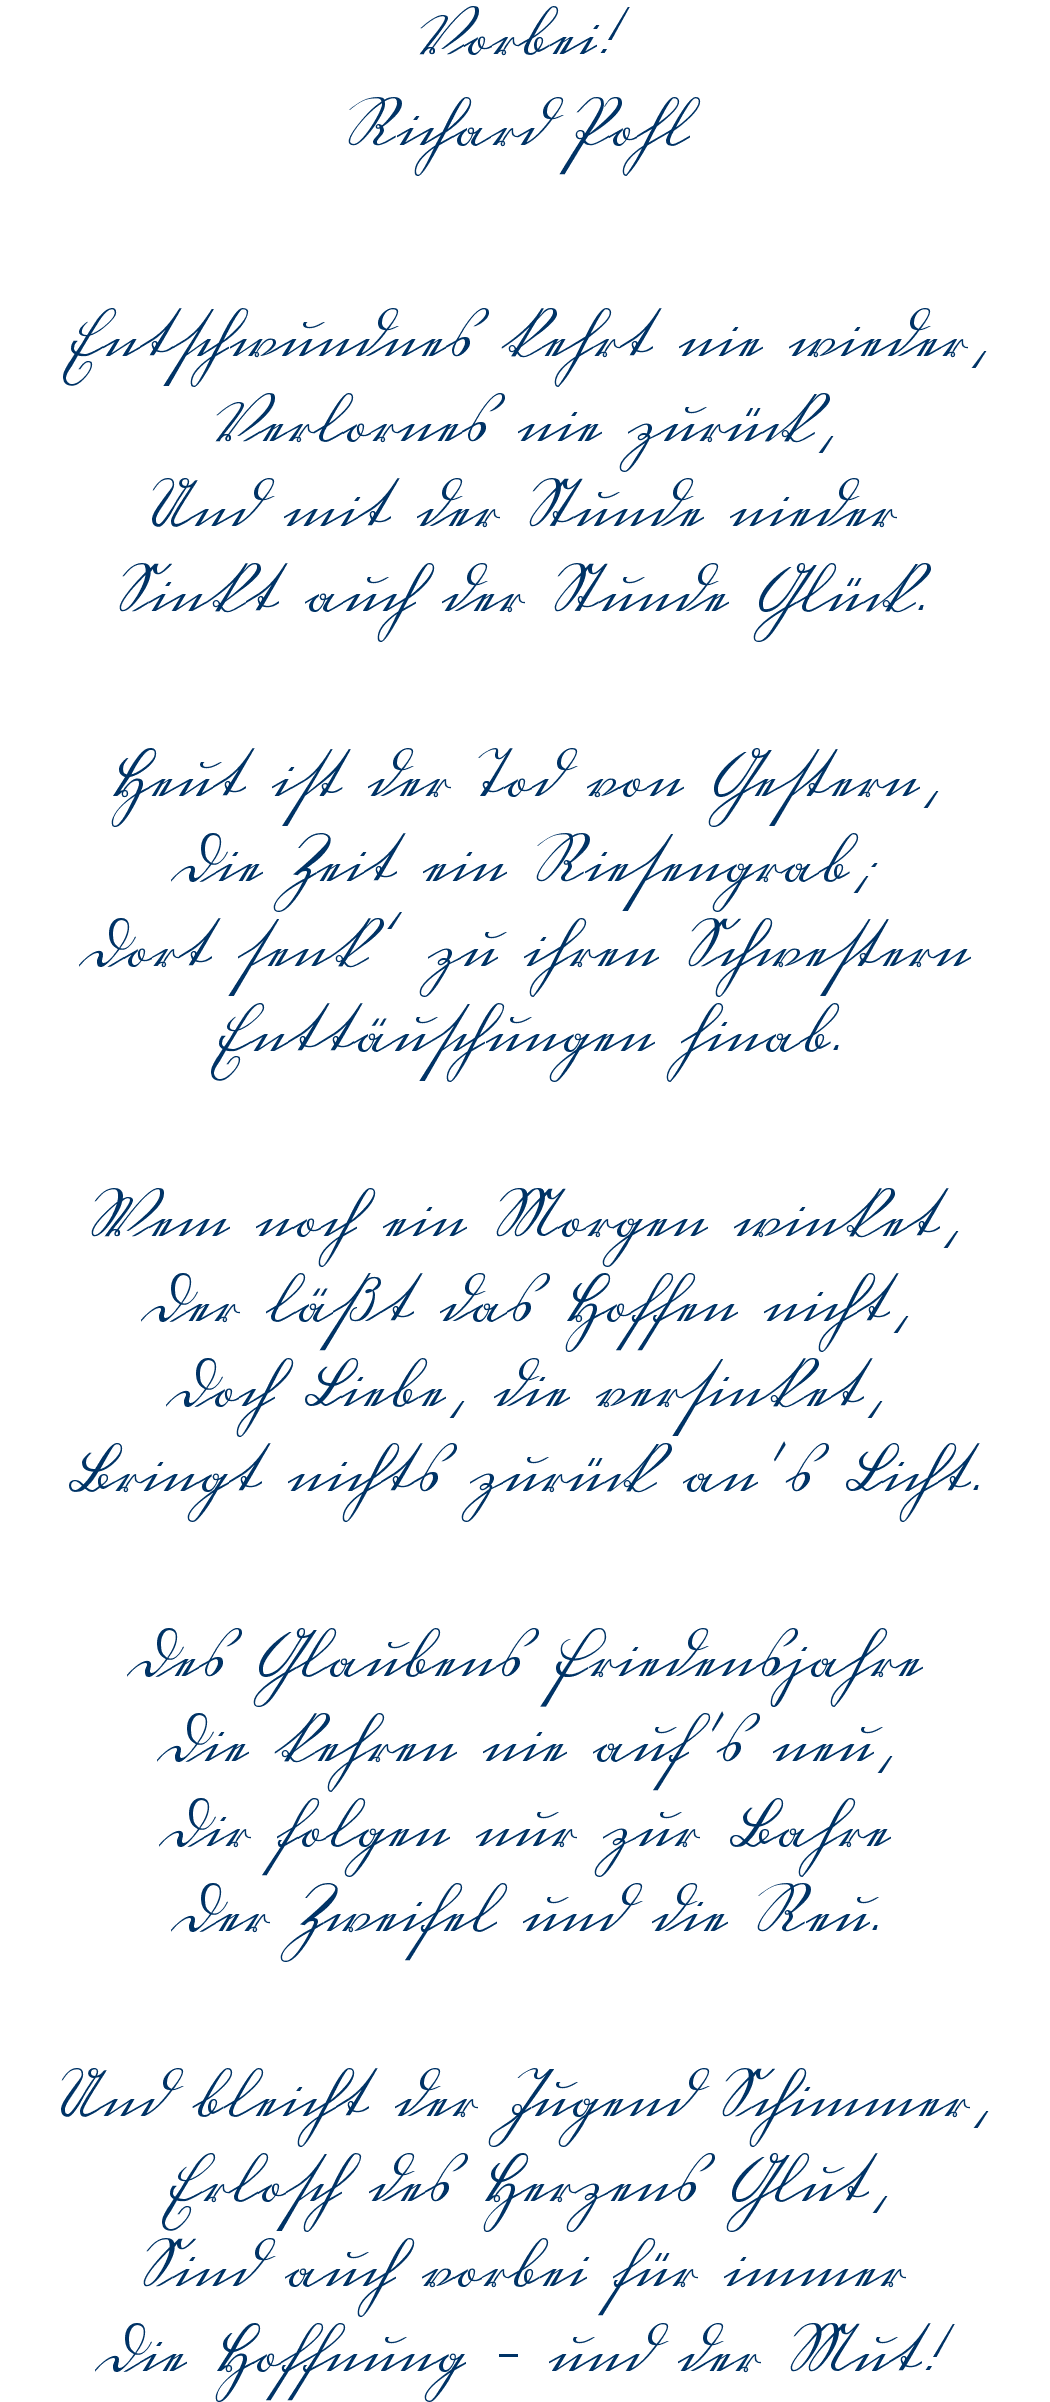 Vorbei!
Richard Pohl
Entschwundnes kehrt nie wieder,
Verlornes nie zurück,
Und mit der Stunde nieder
Sinkt auch der Stunde Glück.
Heut ist der Tod von Gestern,
Die Zeit ein Riesengrab;
Dort senk' zu ihren Schwestern
Enttäuschungen hinab.
Wem noch ein Morgen winket,
Der läßt das Hoffen nicht,
Doch Liebe, die versinket,
Bringt nichts zurück an's Licht.
Des Glaubens Friedensjahre
Die kehren nie auf's neu,
Dir folgen nur zur Bahre
Der Zweifel und die Reu.
Und bleicht der Jugend Schimmer,
Erlosch des Herzens Glut,
Sind auch vorbei für immer
Die Hoffnung - und der Mut!